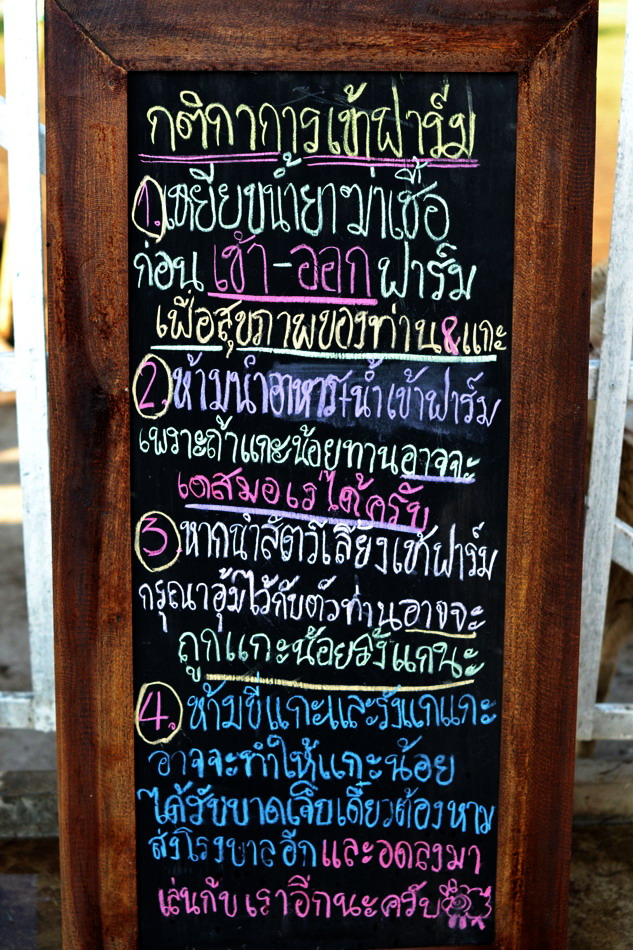 กติกาการเข้าฟาร์ม
1. เหยียบน้ำยาฆ่าเชื้อ
ก่อน เข้า-ออก ฟาร์ม
เพื่อสุขภาพของท่าน&แกะ
2. ห้ามนำอาหาร+น้ำเข้าฟาร์ม
เพราะถ้าแกะน้อยทานอาจจะ
เดสมอเร่ได้ครับ
3. หากนำสัตว์เลี้ยงเข้าฟาร์ม
กรุณาอุ้มไว้กับตัวท่านอาจจะ
ถูกแกะน้อยรังแกนะ
4. ห้ามขี่แกะและรังแกแกะ
อาจจะทำให้แกะน้อย
ได้รับบาดเจ็บเดี๋ยวต้องหาม
ส่งโรงบาลอีกและอดลงมา
เล่นกับเราอีกนะครับ